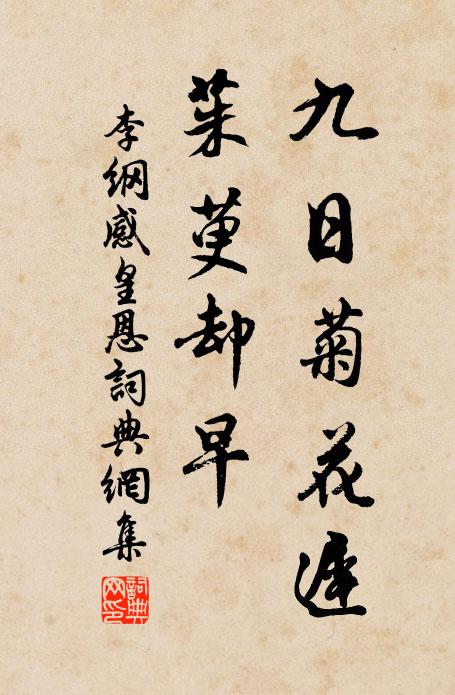 九日菊花遲
茱萸却早
李綱感皇恩詞典網集
詞典网印